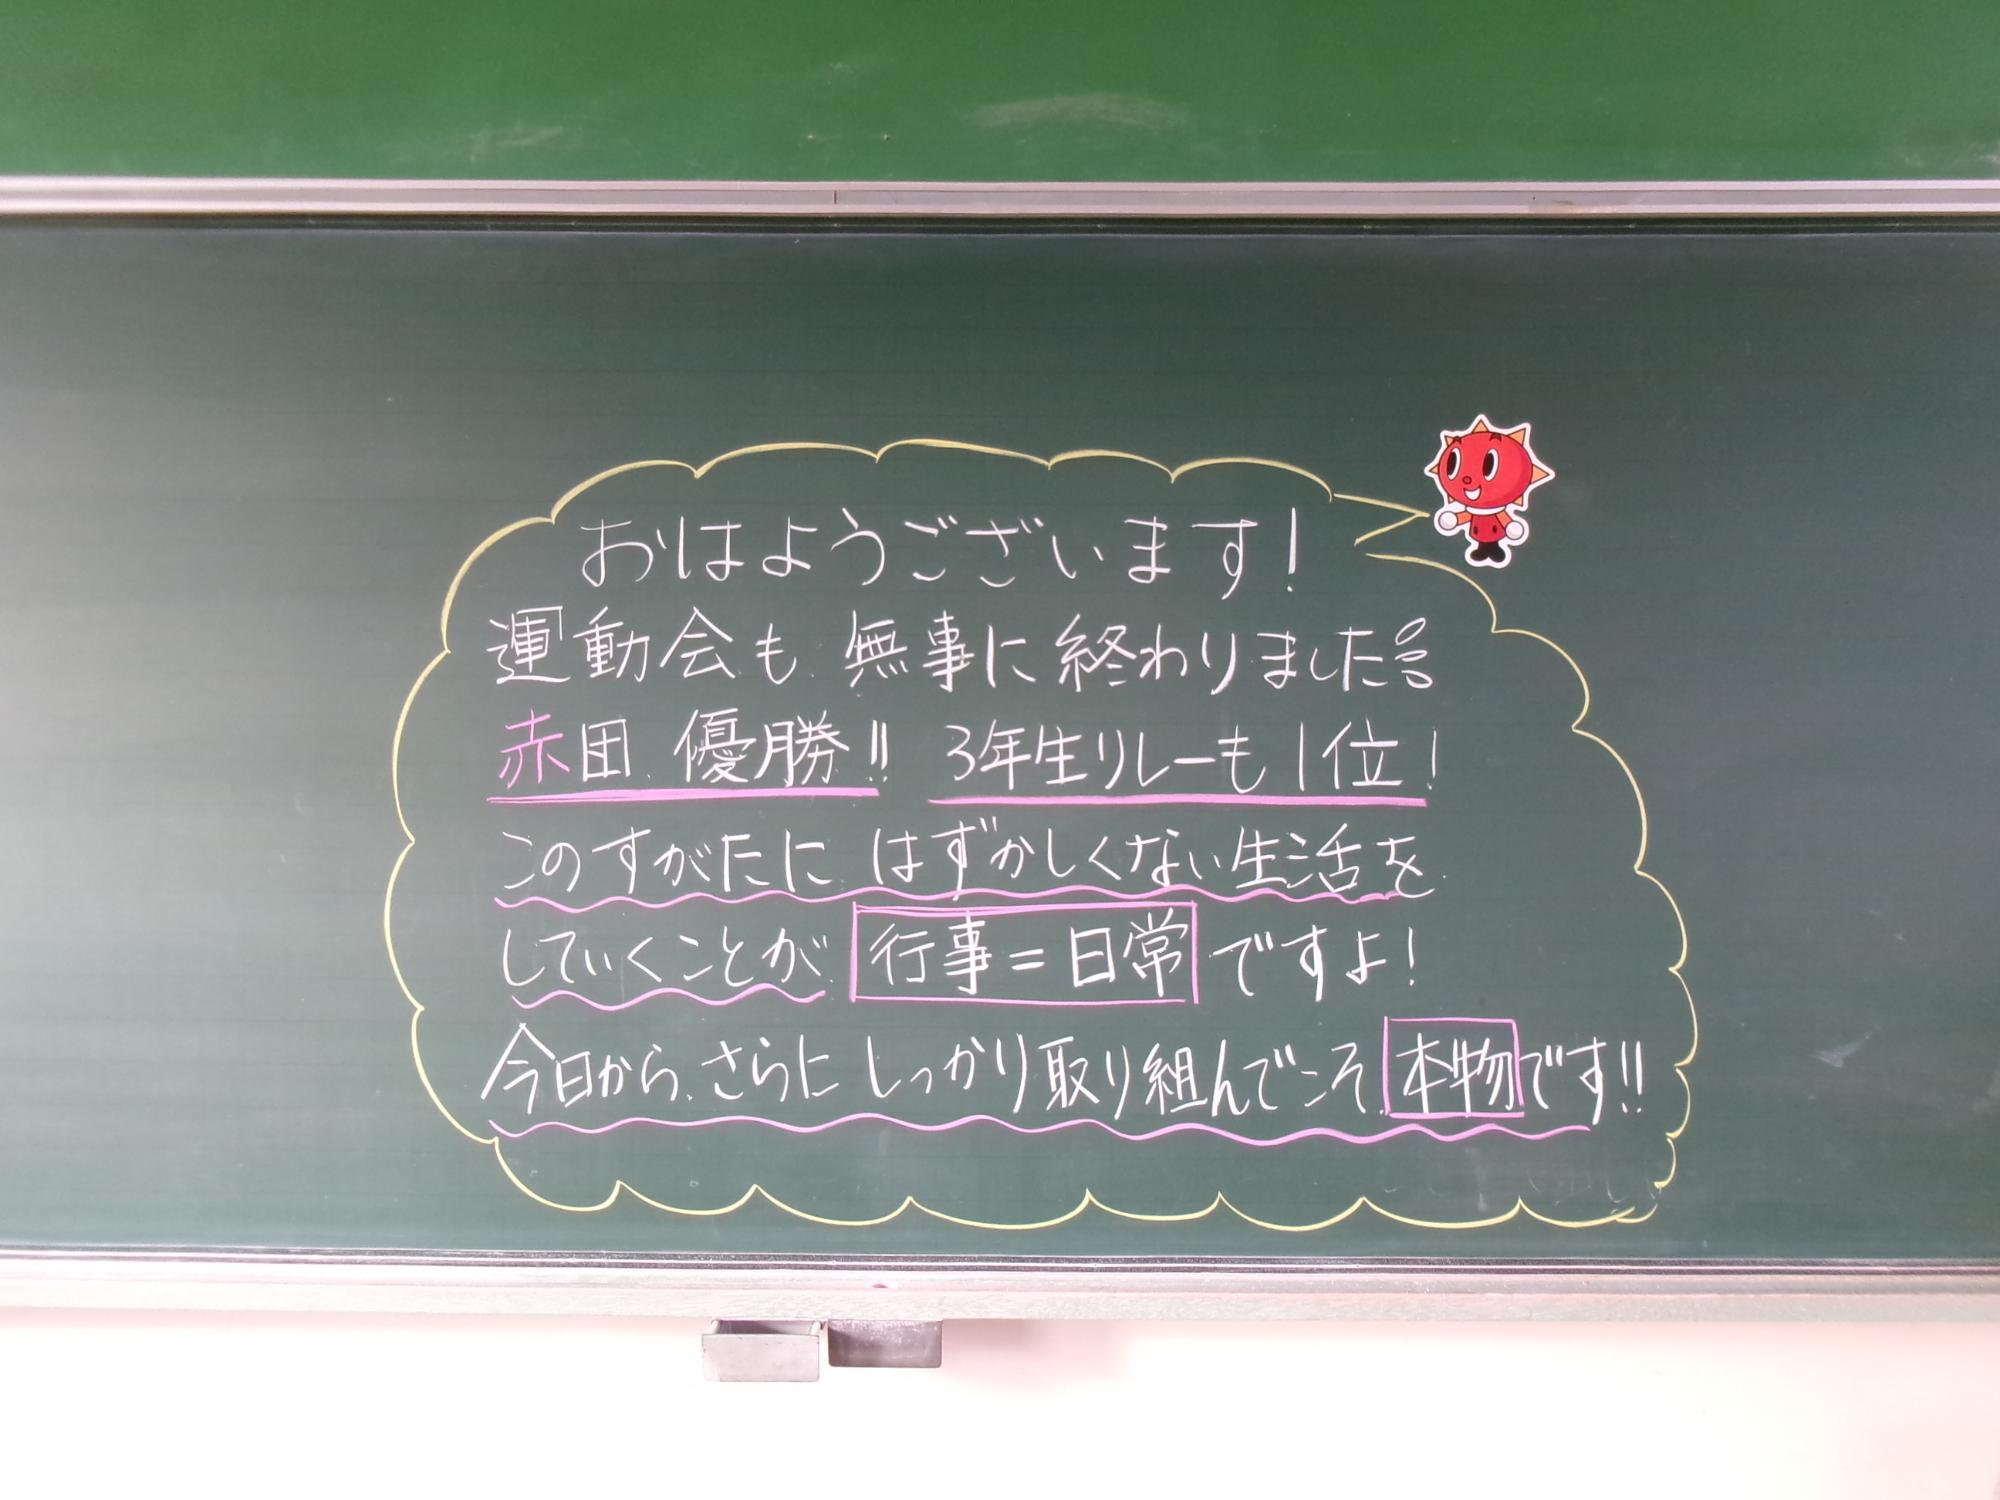 おはようございます!
運動会も無事に終わりました
赤団 優勝!! 3年生リレーも1位!
このすがたに はずかしくない生活を
していくことが 行事=日常 ですよ!
今日から、さらに しっかり取り組んでこそ 本物です!!